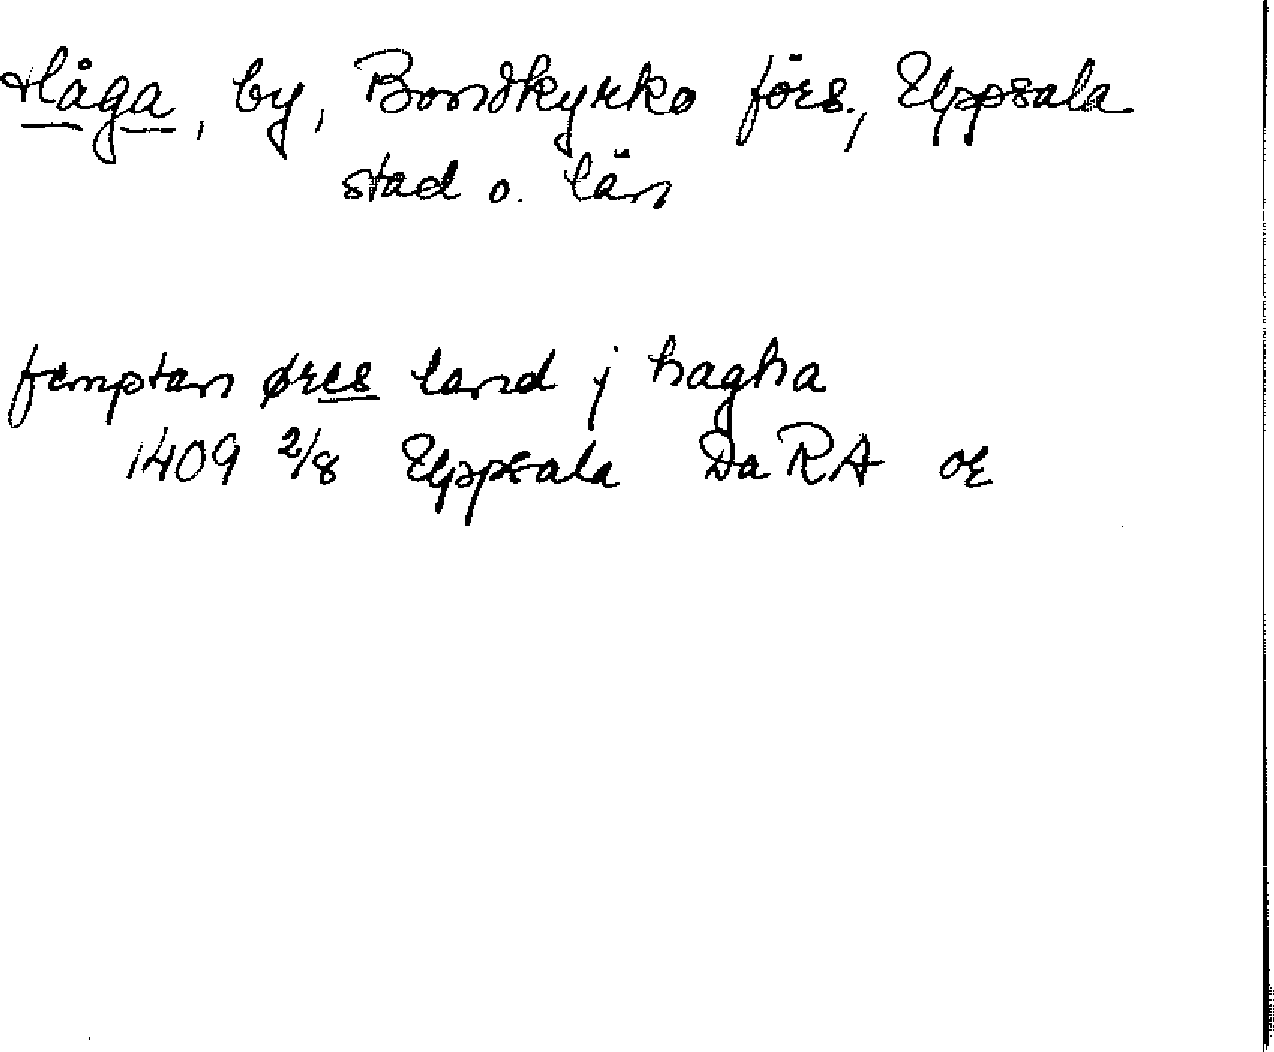 Håga, by, Bondkyrko förs., Uppsala
stad o. län
femptan øres land j hagha
1409 2/8 Uppsala Da RA or